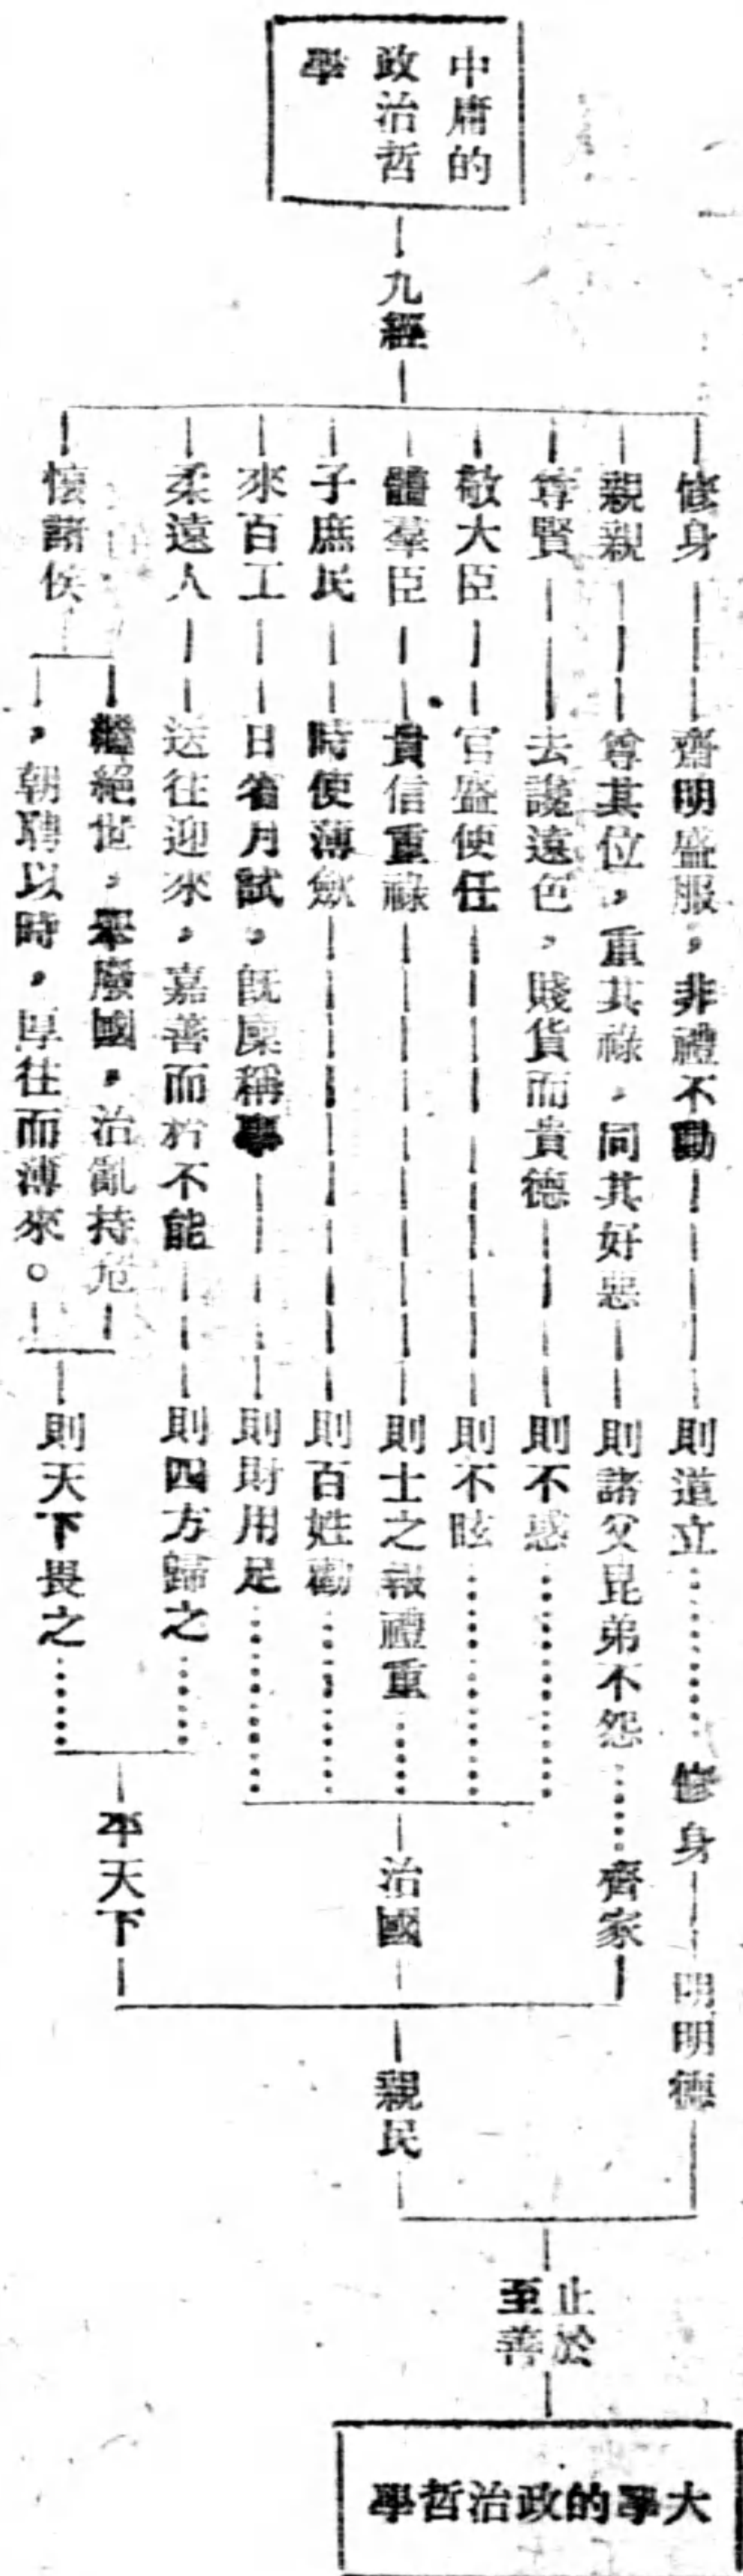 中庸的
政治哲
學
九經
修身
齋明盛服，非禮不動
則道立
修身
明明德
親親
尊其位，重其祿，同其好惡
則諸父昆弟不怨
齊家
尊賢
去讒遠色，賤貨而貴德
則不惑
敬大臣
官盛使任
則不眩
體羣臣
貴信重祿
則士之報禮重
子庶民
時使薄斂
則百姓勸
來百工
日省月試，旣廩稱事
則財用足
治國
柔遠人
送往迎來，嘉善而矜不能
則四方歸之
懷諸侯
繼絕世，舉廢國，治亂持危
，朝聘以時，厚往而薄來。
則天下畏之
平天下
親民
止於
至善
大學的政治哲學